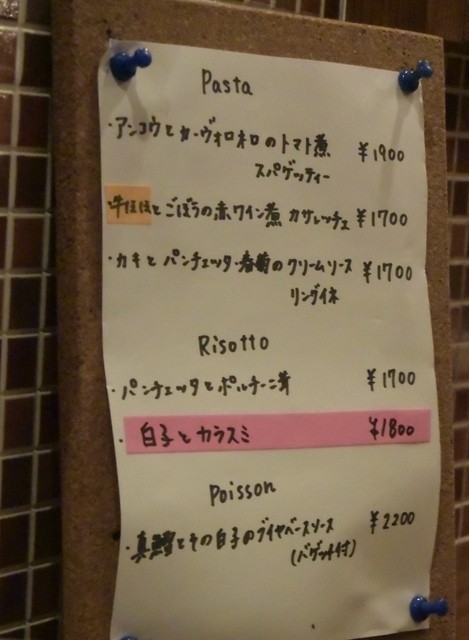 Pasta
・アンコウとカーヴォロネロのトマト煮 ¥1900
スパゲッティー
とごぼうの赤ワイン煮 カサレッチェ ¥1700
・カキとパンチェッタ・春菊のクリームソース ¥1700
リングイネ
Risotto
・パンチェッタとポルチーニ茸 ¥1700
・白子とカラスミ ¥1800
Poisson
・真鱈とその白子のブイヤベースソース ¥2200
(バゲット付)